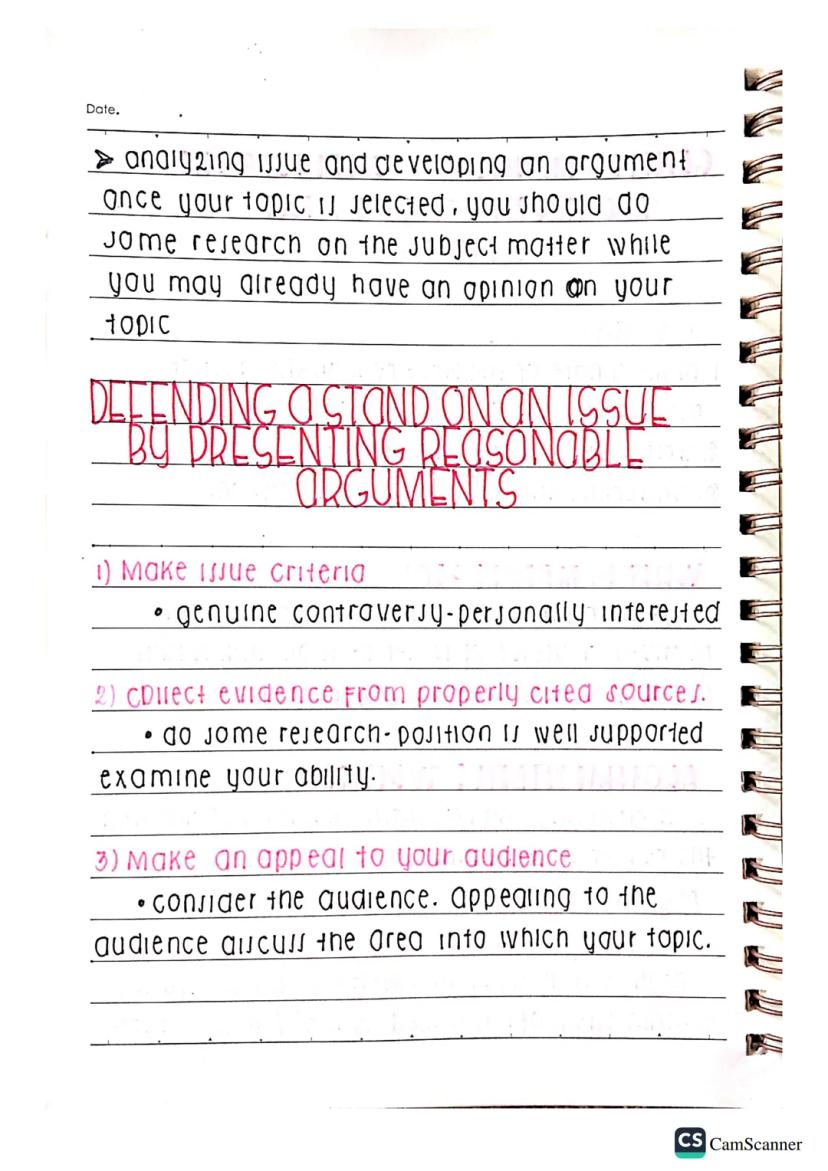 Date.
➢ analyzing issue and developing an argument
once your topic is selected, you should do
some research on the subject matter while
you may already have an opinion on your
topic
DEFENDING A STAND ON AN ISSUE
BY PRESENTING REASONABLE
ARGUMENTS
1) Make issue criteria
• genuine controversy-personally interested
2) collect evidence from properly cited sources.
• do some research-position is well supported
examine your ability.
3) Make an appeal to your audience
• consider the audience. appealing to the
audience discuss the area into which your topic.
CS CamScanner